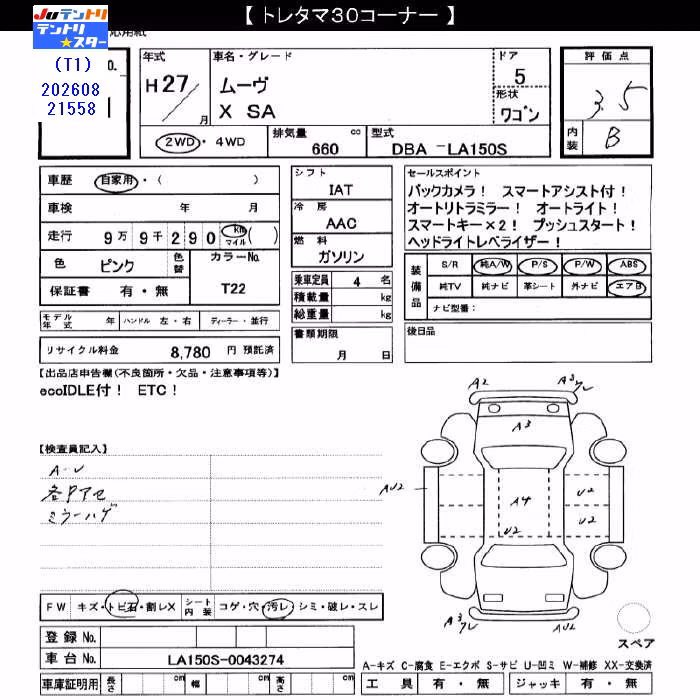 【 トレタマ30コーナー 】
JUテントリ
テントリ★スター
応用紙
(T1)
202608
21558
O.
年式
H 27/ 月
車名・グレード
ムーヴ
X SA
ドア
5
形状
ワゴン
評価点
3.5
内装
B
2WD・4WD
排気量 660 cc
型式 DBA -LA150S
車歴 自家用・( )
車検 年 月
走行 9万9千290 km マイル ( )
色 ピンク 色替
カラーNo. T22
保証書 有・無
シフト
IAT
冷房
AAC
燃料
ガソリン
乗車定員 4 名
積載量 kg
総重量 kg
セールスポイント
バックカメラ! スマートアシスト付!
オートリトラミラー! オートライト!
スマートキー×2! プッシュスタート!
ヘッドライトレベライザー!
装備品
S/R 純A/W P/S P/W ABS
純TV 純ナビ 革シート 外ナビ エアB
ナビ型番:
モデル年式 年 ハンドル 左・右 ディーラー・並行
書類期限
月 日
後日品
リサイクル料金 8,780 円 預託済
【出品店申告欄(不良箇所・欠品・注意事項等)】
ecoIDLE付! ETC!
【検査員記入】
A-U
各Pアセ
ミラーハゲ
A2
A3
A3
AU2
A4
U2
U2
U2
A3
AU2
スペア
FW キズ・トビ石・割レX シート内装 コゲ・穴・汚レ・シミ・破レ・スレ
登録 No.
車台 No. LA150S-0043274
車庫証明用 長さ cm 幅 cm 高さ cm
A-キズ C-腐食 E-エクボ S-サビ U-凹ミ W-補修 XX-交換済
工具 有・無 ジャッキ 有・無